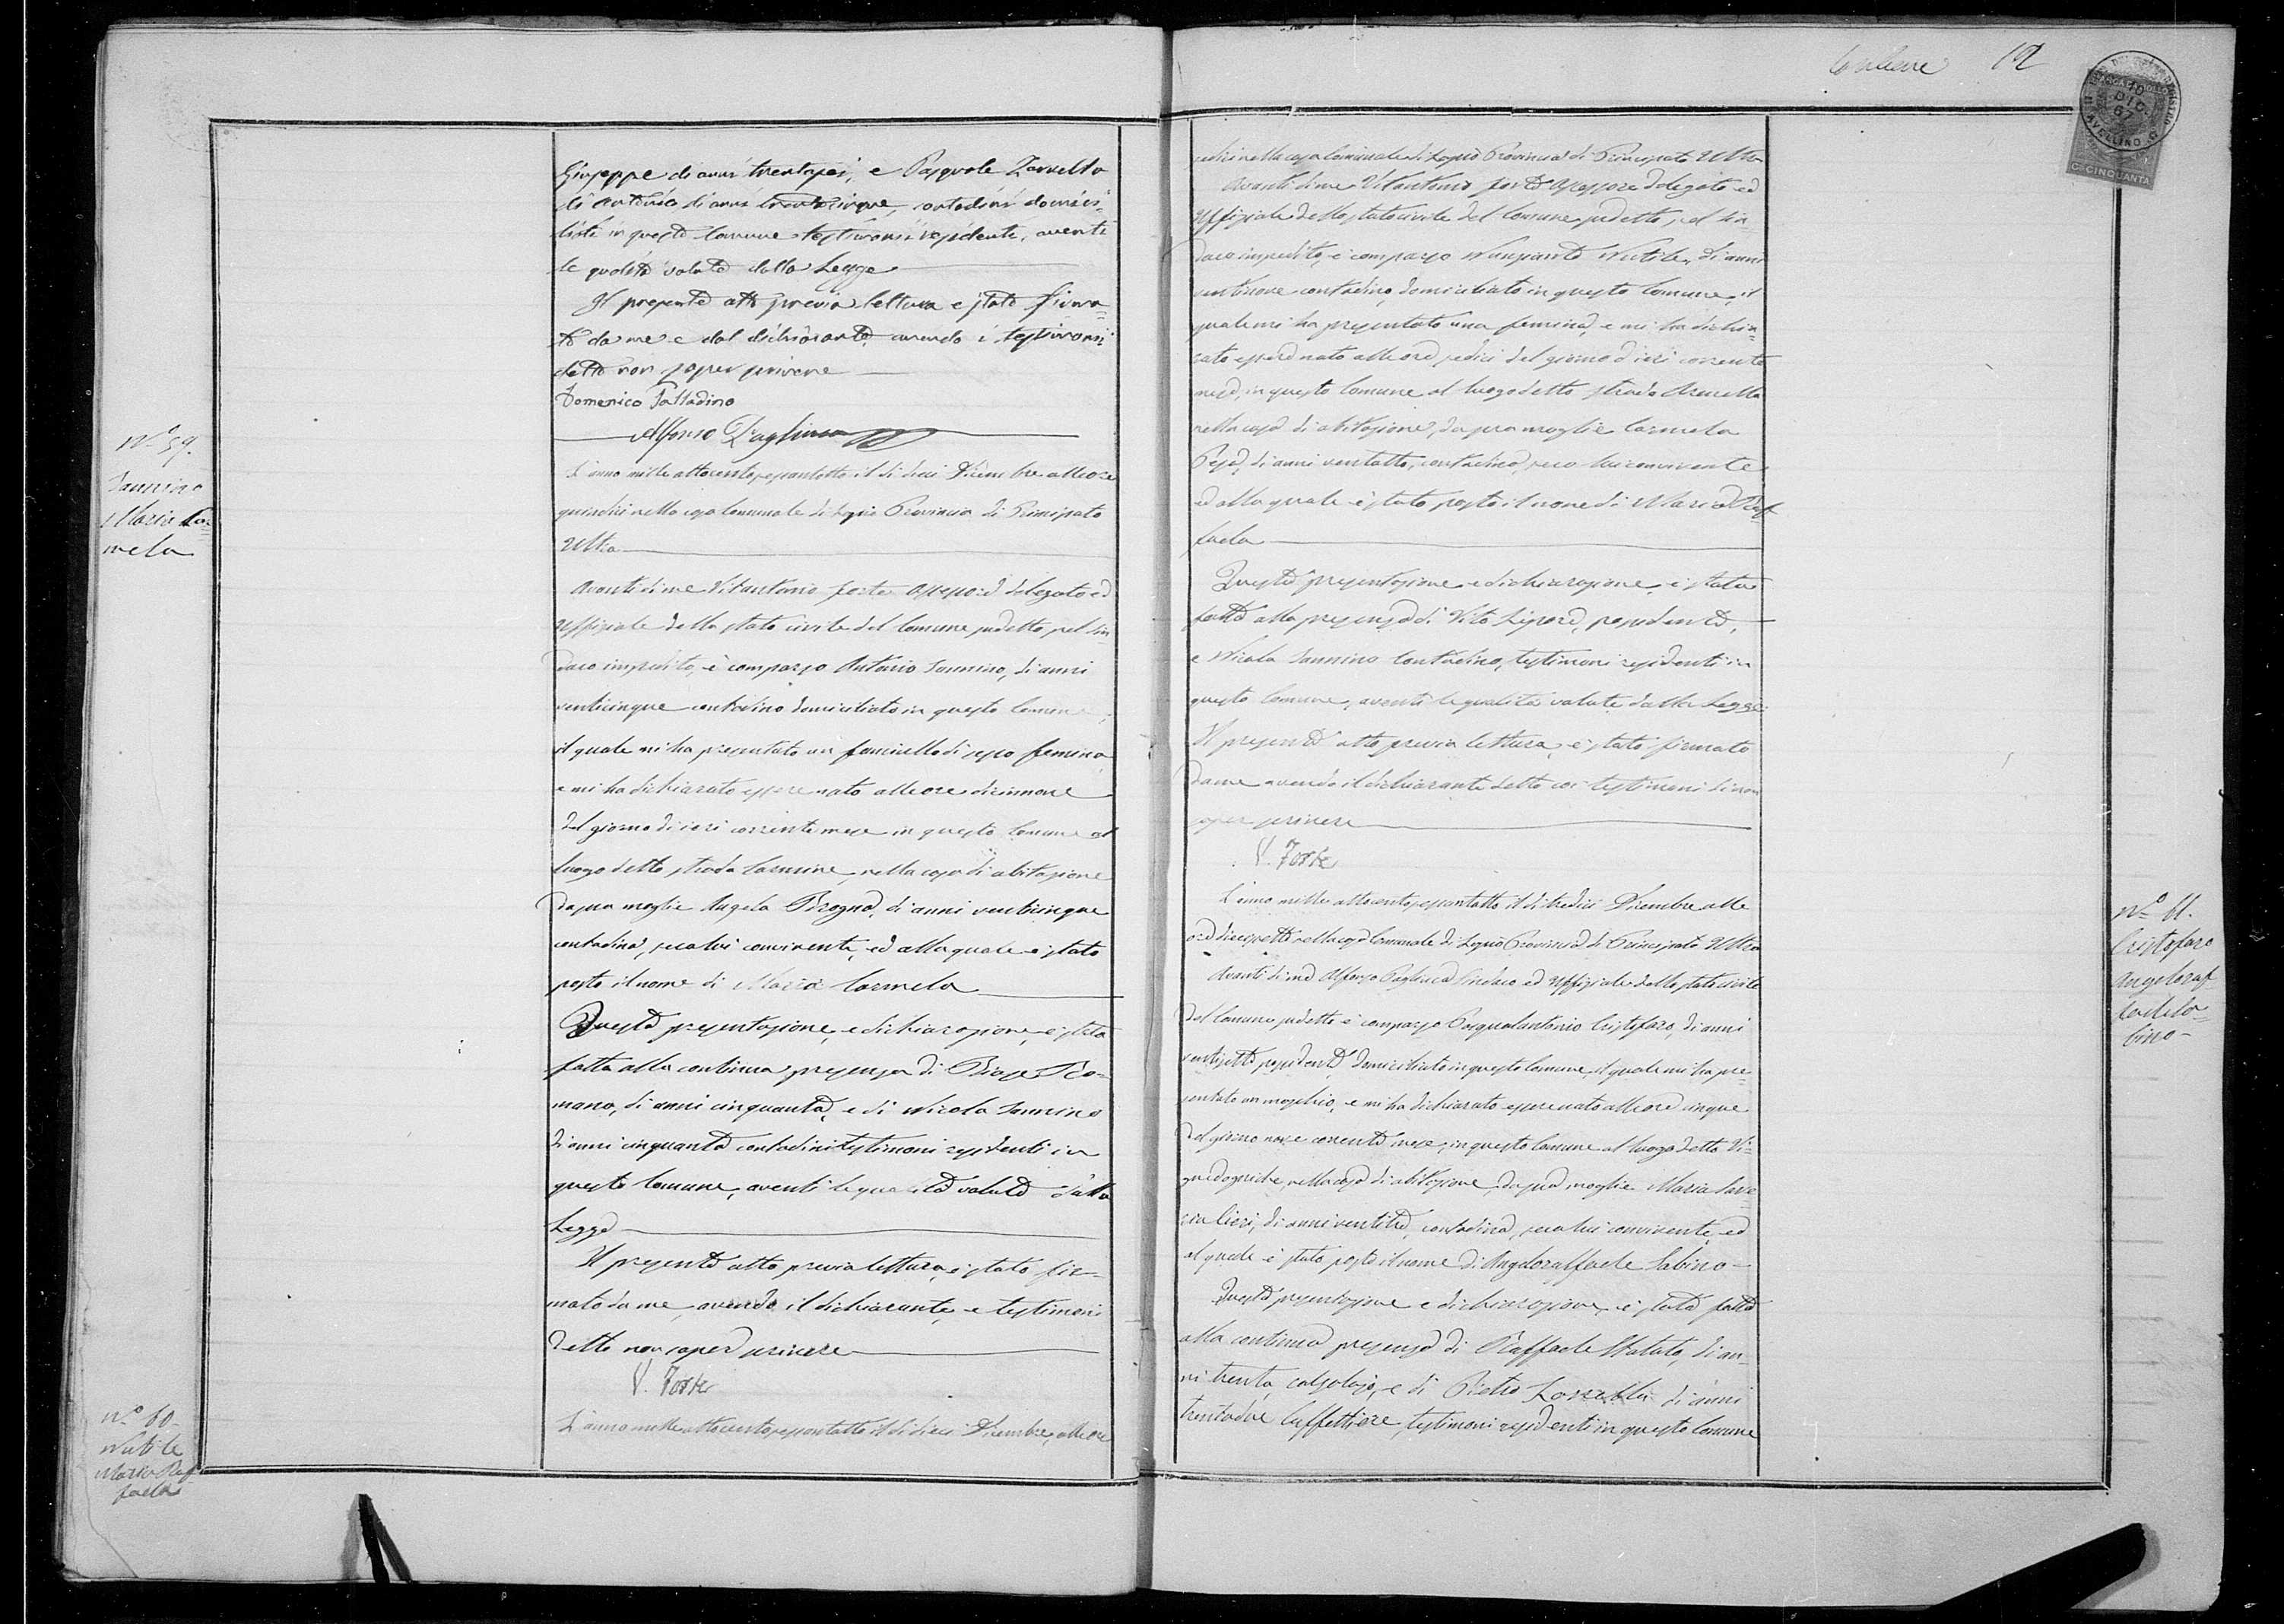 Giuseppe di anni trentasei, e Pasquale Zarrella
di Antonio di anni trentacinque, contadini domici=
liati in questo Comune testimoni residente, aventi
le qualità volute dalla Legge
Il presente atto previa lettura è stato firma=
to da me e dal dichiarante, avendo i testimoni
detto non saper scrivere
Domenico Palladino
Alfonso Pagliuca
N.° 59.
Iannino
Maria Car=
mela
L'anno mille ottocento sessantotto il dì dieci Dicembre alle ore
quindici nella casa Comunale di Lapio Provincia di Principato
Ultra
Avanti di me Vitantonio Forte Assessore delegato ed
Uffiziale dello stato civile del Comune sudetto, pel Sin
daco impedito, è comparso Antonio Iannino, di anni
venticinque contadino domiciliato in questo Comune,
il quale mi ha presentato un fanciullo di sesso femina
e mi ha dichiarato essere nato alle ore diciannove
del giorno di ieri corrente mese in questo Comune al
luogo detto strada Carmine, nella casa di abitazione
da sua moglie Angela Brogna, di anni venticinque
contadina, seco lui convivente, ed alla quale è stato
posto il nome di Maria Carmela
Questa presentazione, e dichiarazione, è stata
fatta alla continua presenza di Biase Ro=
mano, di anni cinquanta, e di Nicola Iannino
di anni cinquanta contadini testimoni residenti in
questo Comune, aventi le qualità volute dalla
Legge
Il presente atto previa lettura, è stato fir=
mato da me, avendo il dichiarante, e testimoni
detto non saper scrivere
V. Forte
N.° 60.
Nutile
Maria Raf
faela
L'anno mille ottocento sessantotto il dì dieci Dicembre, alle ore
Carbone 12
10
DIC.
67
AVELLINO
C. CINQUANTA
sedici nella casa Comunale di Lapio Provincia di Principato Ultra
Avanti di me Vitantonio Forte Assessore delegato ed
Uffiziale dello stato civile del Comune sudetto, pel Sin
daco impedito, è comparso Nunziante Nutile, di anni
ventinove contadino, domiciliato in questo Comune, il
quale mi ha presentato una femina, e mi ha dichia=
rato essere nato alle ore sedici del giorno d'ieri corrente
mese, in questo Comune al luogo detto strada
nella casa di abitazione, da sua moglie Carmela
di anni ventotto, contadina, seco lui convivente
ed alla quale è stato posto il nome di Maria Raf
faela
Questa presentazione e dichiarazione, è stata
fatta alla presenza di Vito possidente,
e Nicola Iannino Contadino, testimoni residenti in
questo Comune, aventi le qualità volute dalla Legge
Il presente atto previa lettura, è stato firmato
da me avendo il dichiarante detto coi testimoni di non
saper scrivere
V. Forte
N.° 61.
Cristofaro
Angeloraf
faele Sa=
bino
L'anno mille ottocento sessantotto il dì tredici Dicembre alle
ore diecisette nella casa Comunale di Lapio Provincia di Principato Ultra
Avanti di me Alfonso Pagliuca Sindaco ed Uffiziale dello stato civile
del Comune sudetto è comparso Pasqualantonio Cristofaro, di anni
ventisette possidente domiciliato in questo Comune, il quale mi ha pre=
sentato un maschio, e mi ha dichiarato essere nato alle ore cinque
del giorno nove corrente mese, in questo Comune al luogo detto Vi=
nella casa di abitazione, da sua moglie Maria Save
ria di anni ventitre, contadina, seco lui convivente, ed
al quale è stato posto il nome di Angeloraffaele Sabino
Questa presentazione e dichiarazione, è stata fatta
alla continua presenza di Raffaele di an=
ni trenta calzolajo, e di Pietro Zarrella di anni
trentadue Caffettiere, testimoni residenti in questo Comune